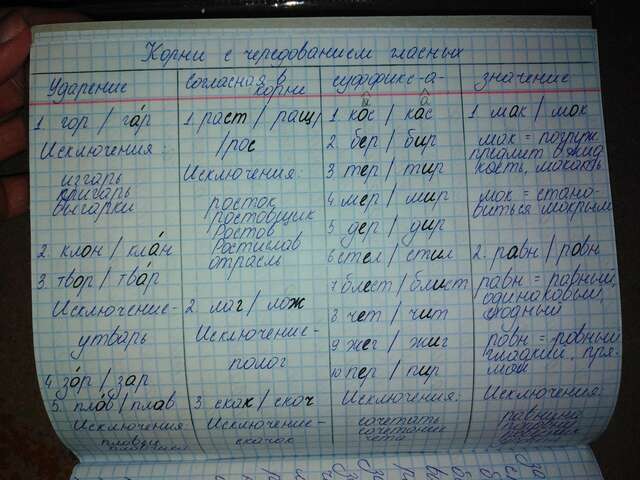 Корни с чередованием гласных
Ударение
1. гор / га́р
Исключения:
изгарь
пригарь
выгарки
2. клон / кла́н
3. твор / тва́р
Исключение-
утварь
4. зо́р / зар
5. пла́в / плав
Исключения:
пловцы
согласная в
корне
1. раст / ращ/
/рос
Исключения:
росток
ростовщик
Ростов
Ростислав
отрасль
2. лаг / лож
Исключение-
полог
3. скак / скоч
Исключение-
скачок
суффикс -а-
1. кос / кас
а а
2. бер / бир
3 тер / тир
4 мер / мир
5 дер / дир
6 стел / стил
7 блест / блист
8 чет / чит
9 жег / жиг
10 пер / пир
Исключения:
сочетать
сочетание
чета
значение
1. мак / мок
мак = погруж.
предмет в жид
кость, макать
мок = стано-
виться мокрым
2. равн / ровн
равн = равный,
одинаковый,
сходный
ровн = ровный
гладкий, пря-
мой
Исключения:
равнина